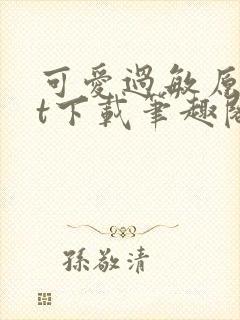 可愛過敏原
t下載筆趣閣
孫敬清